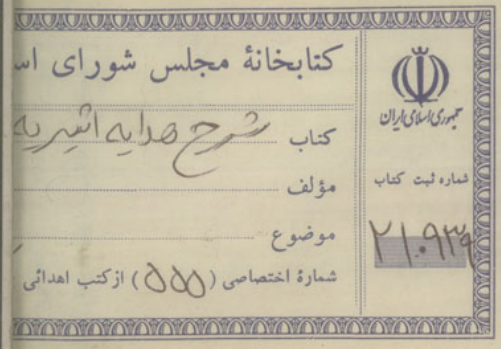 کتابخانهٔ مجلس شورای اس
کتاب شرح هدایه اثیریه
مؤلف
موضوع
شمارهٔ اختصاصی (۵۵۵) از کتب اهدائی
جمهوری اسلامی ایران
شماره ثبت کتاب
۲۱۰۹۳۹